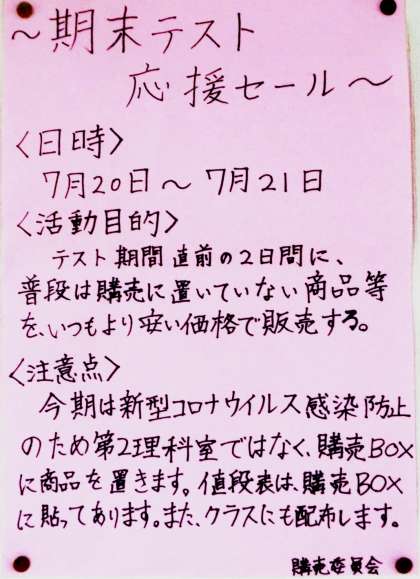 ～期末テスト
応援セール～
〈日時〉
7月20日～7月21日
〈活動目的〉
テスト期間直前の2日間に、
普段は購売に置いていない商品等
を、いつもより安い価格で販売する。
〈注意点〉
今期は新型コロナウイルス感染防止
のため第2理科室ではなく、購売BOX
に商品を置きます。値段表は、購売BOX
に貼ってあります。また、クラスにも配布します。
購売委員会